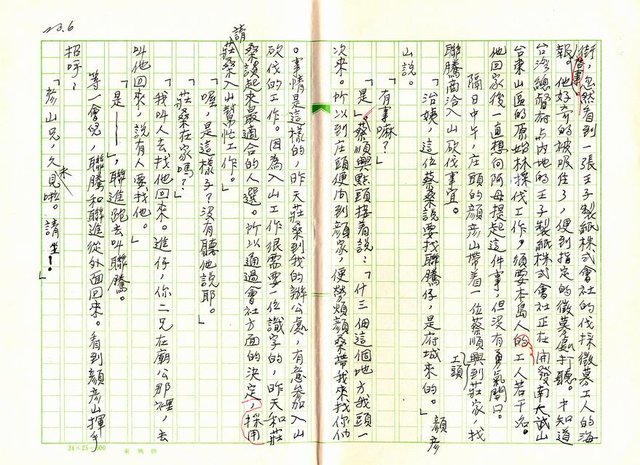 街,忽然看到一張王子製紙株式會社的伐採徵募工人的海
報。他好奇的被吸住了,便到指定的徵募處打聽。才知道
台灣總督府占內地的王子製紙株式會社正在開發南大武山
台東山區的原始林採伐工作,須要本島人的工人若干名。
他回家後一直想向阿母提起這件事,但沒有勇氣開口。
隔日中午,庄頭的顏彥山帶着一位蔡順興到莊家,找
工頭
聯騰商洽入山砍伐事宜。
「治姨,這位蔡桑說要找聯騰仔,是府城來的。」顏彥
山說。
「有事嘛?」
「是」蔡順興點頭接着說:「什三個這個地方我頭一
次來。所以到庄頭便問到顏家,便勞煩顏桑帶我來找你們
。事情是這樣的,昨天莊桑到我的辦公處,有意參加入山
砍伐的工作。因為入山工作很需要一位識字的,昨天和莊
桑談起來最適合的人選。所以通過會社方面的決定,採用
請
莊桑入山幫忙工作。」
「喔,是這樣子?沒有聽他說耶。」
「莊桑在家嗎?」
「我叫人去找他回來。進仔,你二兄在廟公那裡,去
叫他回來,說有人要找他。」
「是——」聯進跑去叫聯騰。
等一會兒,聯騰和聯進從外面回來。看到顏彥山揮手
招呼:
「彥山兄,久未見啦。請坐!」
20.6
24×25=600